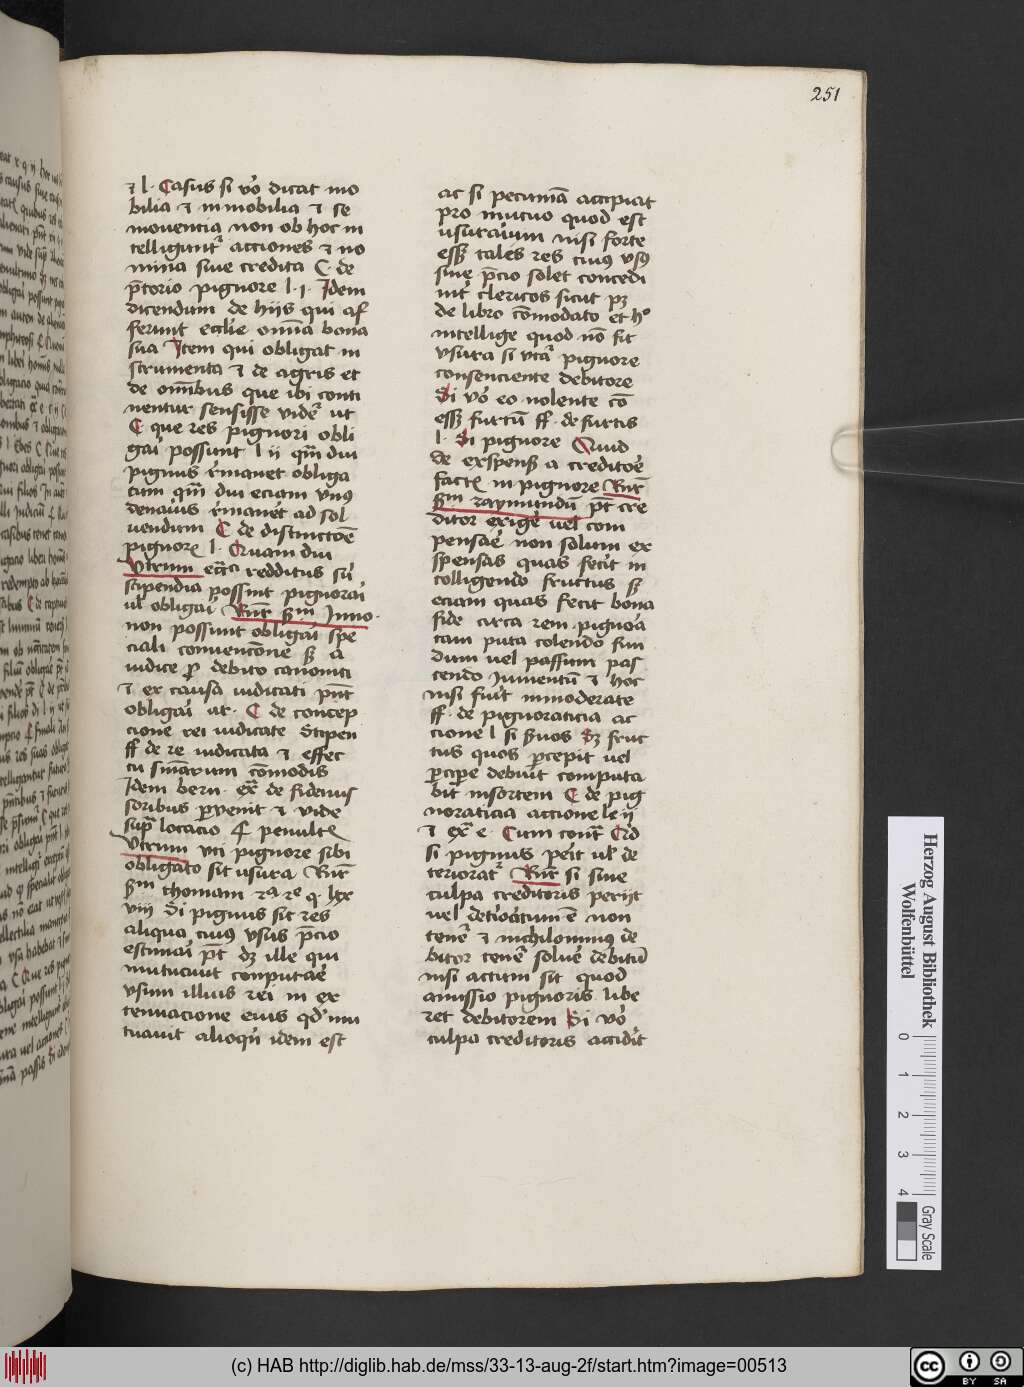 251
⁊ l. Casus si vo᷎ dicat mo
bilia ⁊ inmobilia ⁊ se
mouencia non ob hoc in
telligunt᷑ acciones ⁊ no
mina siue credita C. de
p̄torio pignore l. j. Idem
dicendum de hijs qui af
ferunt eccl̄ie omnia bona
sua Item qui obligat in
strumenta ⁊ de agris et
de om̄ibus que ibi conti
nentur sensisse vider̄ ut
C que res pignori obli
gar̄i possunt l ij qm̄ diu
pignus r̄manet obliga
tum qm̄ diu eciam vnꝰ
denarius r̄manet ad sol
uendum C de distinctōe
pignorꝝ l. Quam diu
Vtrum redditus su᷎
stipendia possint pignorar̄i
ul᷎ obligar̄i Rn̄r sm̄ Inno.
non possunt obligar̄i spe
ciali conuencōne sꝫ a
iudice ꝓ debito canonici
⁊ ex causa iudicati pn̄t
obligar̄i ar. C de concep
cione rei iudicate Stipen
ff de re iudicata ⁊ effec
tu sn̄iarum cōmodis
Idem bern. ex̄ de fideius
soribus ꝑuenit ⁊ vide
supᷓ locacio penultꝫ
Vtrum vti pignore sibi
obligato sit usura Rn̄r
sm̄ thomam q. lxx
viij Si pignus sit res
aliqua cuiꝰ vsus p̄cio
estimar̄i pt̄ dꝫ ille qui
mutuauit computar̄e
vsum illius rei in ex
tenuacione eius qd᷎ mu
tuauit alioqn̄ idem est
ac si pecuniā accipiat
pro mutuo quod est
usurarium nisi forte
essꝫ tales res cuiꝰ vsꝰ
sine p̄cio solet concedi
int᷑ clericos sicut pꝫ
de libro cōmodato et hᵒ
intellige quod nō fit
vsura si vtat᷑ pignore
consenciente debitore
Si vo᷎ eo nolente cō
essꝫ furtū ff. de furtis
l. Si pignore Quid
de expensꝫ a creditor̄e
factꝫ in pignore Rn̄r
sm̄ raymundū pt̄ cre
ditor exiger̄e uel com
pensar̄e non solum ex
spensas quas fecit in
colligendo fructus sꝫ
eciam quas fecit bona
fide circa rem pignor̄a
tam puta colendo fun
dum uel passum pas
cendo Iumentū ⁊ hoc
nisi fuer̄it inmoderate
ff. de pignoraticia ac
cione l si suos Sꝫ fruc
tus quos ꝑcepit uel
ꝑciper̄e debuit computa
bit insortem C de pig
noraticia accione le ij
⁊ ex̄ e. Cum cont᷑ Qd᷎
si pignus per̄eit ul᷎ de
teriorat᷑ Rn̄r si sine
culpa creditoris perijt
uel deter̄ioratum ē non
tener̄ ⁊ nichilominꝰ de
bitor tener̄ soluer̄e debitū
nisi actum sit quod
amissio pignoris libe
ret debitorem Si vo᷎
culpa creditoris accidit
Herzog August Bibliothek
Wolfenbüttel
0 1 2 3 4
Gray Scale
(c) HAB http://diglib.hab.de/mss/33-13-aug-2f/start.htm?image=00513
cc BY SA